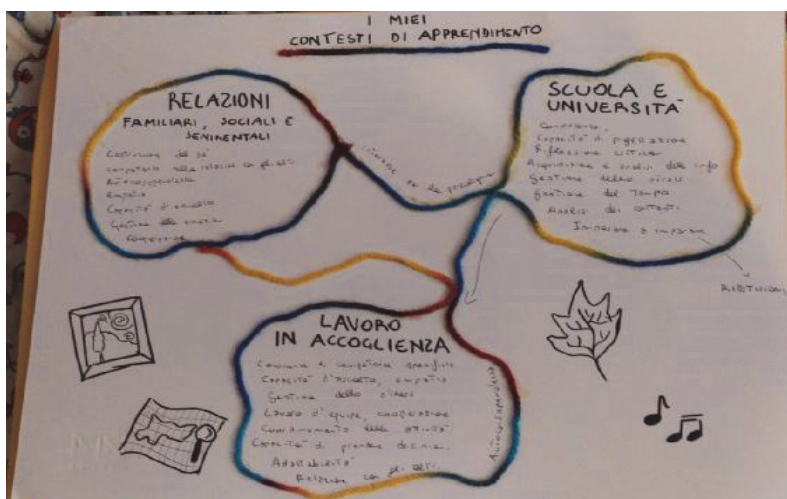 I MIEI
CONTESTI DI APPRENDIMENTO
RELAZIONI
FAMILIARI, SOCIALI E
SENIMENTALI
Costruzione del sé
competenza nella relazione con gli altri
Autoconsapevolezza
Empatia
Capacità d'ascolto
Gestione delle
SCUOLA E
UNIVERSITÀ
Conoscenze,
Capacità di
Riflessione critica
Acquisizione e analisi delle info
Gestione dello stress
Gestione del Tempo
Analisi dei contesti
Imparare a imparare
LAVORO
IN ACCOGLIENZA
Conoscenze e competenze specifiche
Capacità d'ascolto, empatia
Gestione dello stress
Lavoro d'equipe, cooperazione
Coordinamento delle attività
Capacità di prendere decisioni
Adattabilità
Relazione con gli altri
Autoconsapevolezza